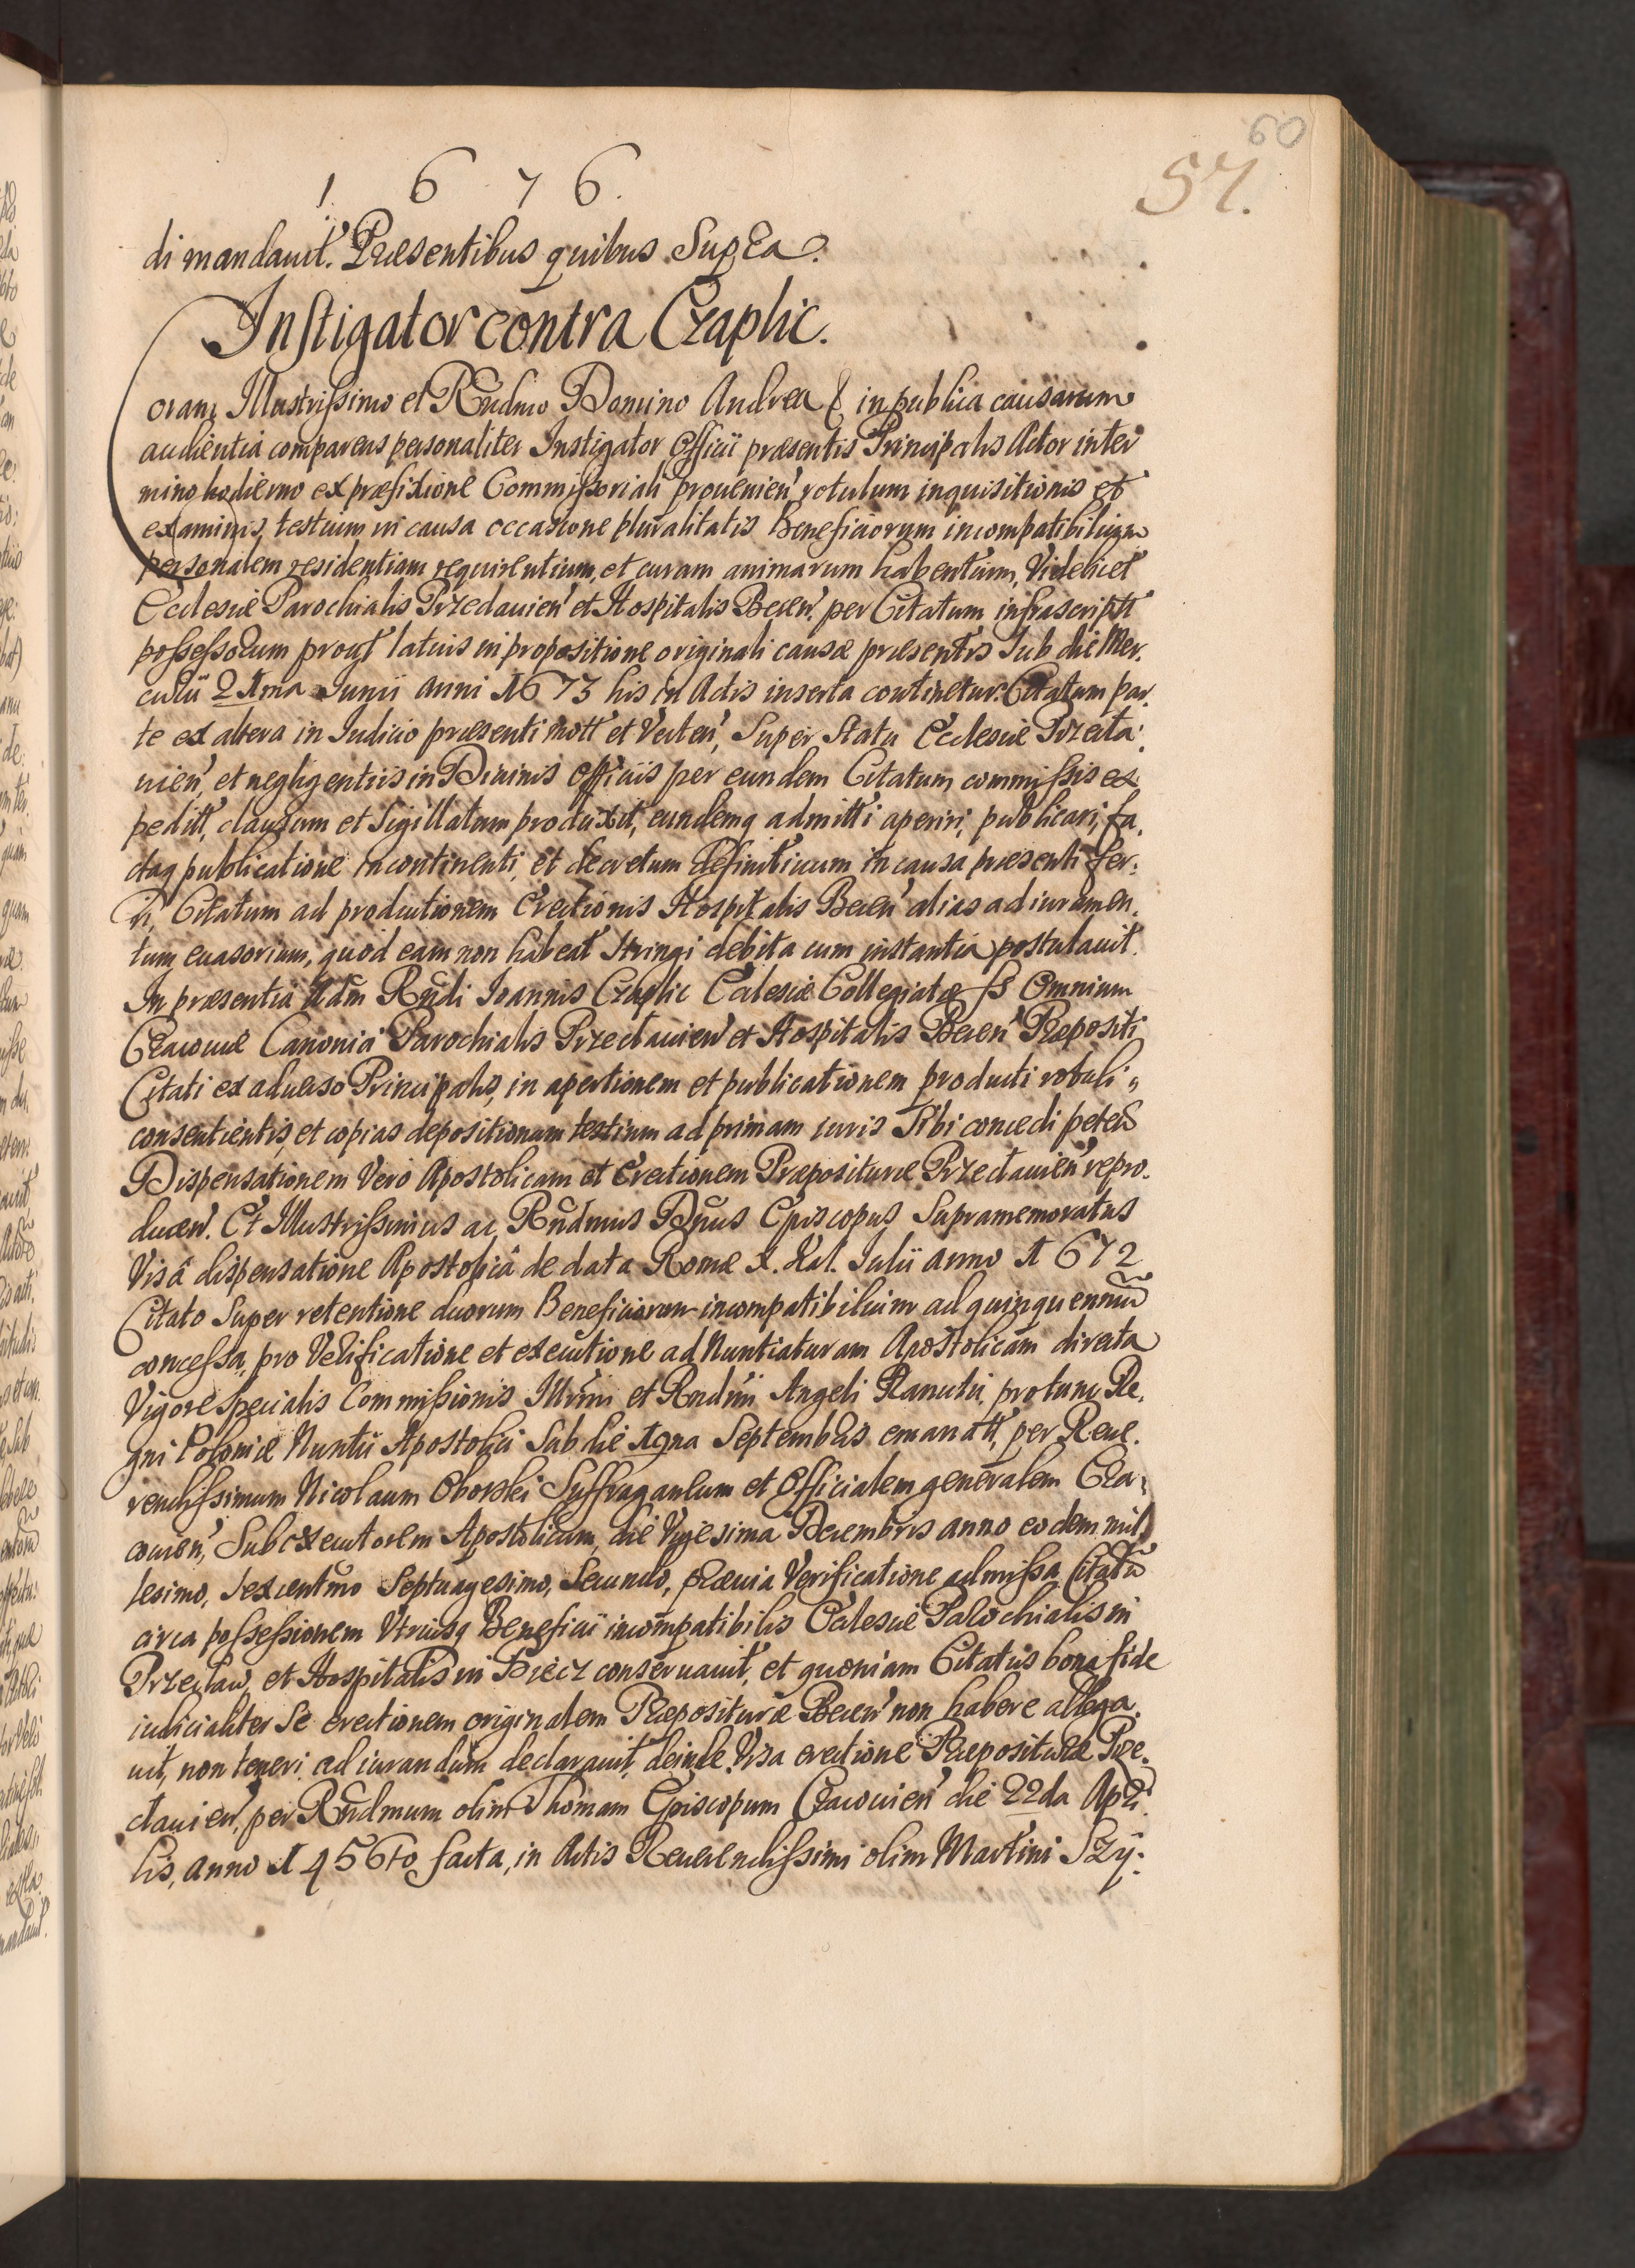 60
57.
1 6 7 6.
di mandauit. Præsentibus quibus Supra.
Instigator contra Czaplic.
Coram Illustrissimo et Rndmo Domino Andrea & in publica causarum
audientia comparens personaliter Instigator Officii præsentis Principalis Actor in ter
mino hodierno ex præfixione Commissoriali prouenien' rotulum inquisitionis et
examinis testium in causa occasione pluralitatis Beneficiorum incompatibilium
personalem residentiam requirentium, et curam animarum habentium, Videlicet
Ecclesiæ Parochialis Przeclauien' et Hospitalis Becen'. per Citatum infrascriptt
possessorum prout latius in propositione originali causæ præsentis sub die Mer.
curii 21ma Junii anni 1673 his in Actis inserta continetur. Citatum par.
te ex altera in Iudicio præsenti mott et Verten', Super Statu Ecclesiæ Przecla:
uien', et negligentiis in Diuinis officiis per eundem Citatum commissis ex
peditt, clausum et Sigillatum produxit, eundemq admitti aperiri, publicari, fa.
ctaq publicatione incontinenti, et decretum definitiuum in causa præsenti fer:
ri, Citatum ad productionem Erectionis Hospitalis Becen' alias ad iuramen.
tum euasorium, quod eam non habeat stringi debita cum instantia postulauit.
In præsentia Adm Rndi Ioannis Czaplic Ecclesiæ Collegiatæ SS Omnium
Cracouiæ Canonici Parochialis Przeclauien' et Hospitalis Becen' Præpositi
Citati ex aduerso Principalis, in apertionem et publicationem producti rotuli
consentientis, et copias depositionum testium ad primam iuris Sibi concedi peten
Dispensationem Vero Apostolicam et Erectionem Præposituræ Przeclauien' repro.
ducen'. Et Illustrissimus ac Rndmus Dnus Episcopus Supramemoratus
Visâ dispensatione Apostolicâ de data Romæ X. Kal. Iulii anno 1672
Citato Super retentione duorum Beneficiorum incompatibilium ad quinquenniu
concessa, pro Verificatione et executione ad Nuntiaturam Apostolicam directa
Vigore specialis Commissionis Illrmi et Rndmi Angeli Ranutii, protunc Re.
gni Poloniæ Nuntii Apostolici Sub die 19na Septembris emanatt, per Reue.
rendissimum Nicolaum Oborski Suffraganeum et Officialem generalem Cra.
couien', Subexecutorem Apostolicum, die Vigesima Decembris anno eodem mil
lesimo, sexcentmo Septuagesimo, Secundo, præuia Verificatione admissa Citatu
circa possessionem Vtriusq Beneficii incompatibilis Ecclesiæ Parochialis in
Przecław, et Hospitalis in Biecz conseruauit, et quoniam Citatus bona fide
iudicialiter Se erectionem originalem Præposituræ Becen' non habere allega.
uit, non teneri ad iurandum declarauit, deinde Visa erectione Præposituræ Prze.
clauien', per Rndmum olim Thomam Episcopum Cracouien' die 22da Apri
lis, anno 1456to facta, in Actis Reuerendissimi olim Martini Szy: